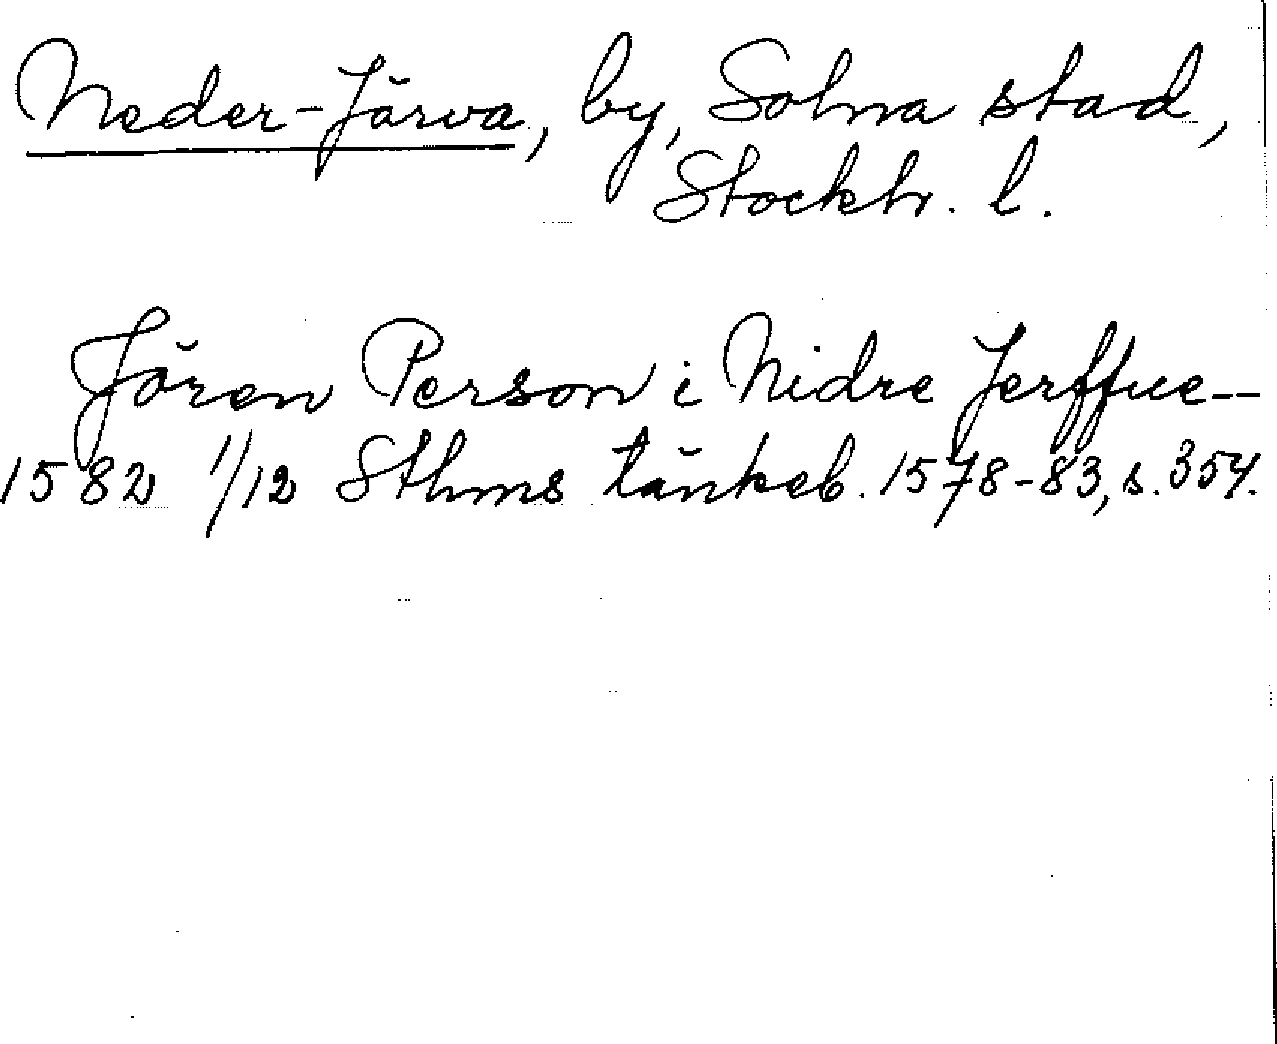 Neder-Järva, by, Solna stad,
Stockh. l.
Jören Person i Nidre Jerffue--
1582 1/12 Sthms tänkeb. 1578-83, s. 354.